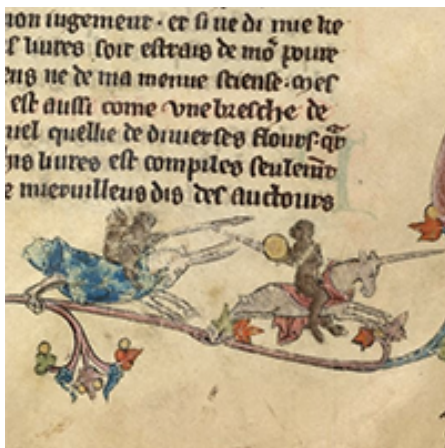 iugement · et si ne di mie ke
liures soit estrais de mõ poure
ne de ma menue sciense · mes
est aussi come vne bresche de
quellie de diuerses flours · qr̃
liures est compiles seulem̃t
mieruilleus dis des auctours